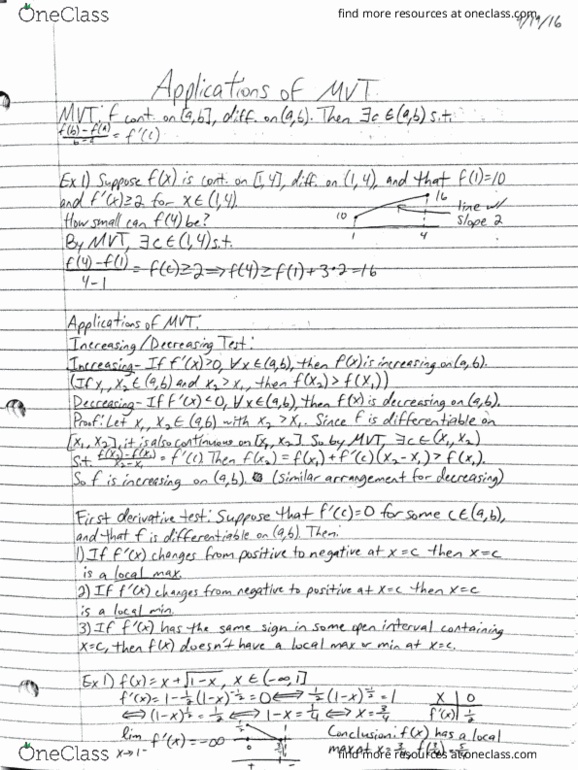 OneClass
find more resources at oneclass.com
/19/16
Applications of MVT
MVT: f cont. on [a,b], diff. on (a,b). Then ∃c∈(a,b) s.t.
f(b)-f(a)/b-a = f'(c)
Ex 1) Suppose f(x) is cont. on [1,4], diff. on (1,4), and that f(1)=10
and f'(x)≥2 for x∈(1,4).
How small can f(4) be?
By MVT, ∃c∈(1,4) s.t.
f(4)-f(1)/4-1 = f(c)≥2⟹f(4)≥f(1)+3·2=16
10
16
1
4
line w/
slope 2
Applications of MVT:
Increasing/Decreasing Test:
Increasing- If f'(x)>0, ∀x∈(a,b), then f(x) is increasing on (a,b).
(If x₁, x₂∈(a,b) and x₂>x₁, then f(x₂)>f(x₁))
Decreasing- If f'(x)<0, ∀x∈(a,b), then f(x) is decreasing on (a,b).
Proof: Let x₁, x₂∈(a,b) with x₂>x₁. Since f is differentiable on
[x₁,x₂], it is also continuous on [x₁,x₂]. So by MVT, ∃c∈(x₁,x₂)
s.t. f(x₂)-f(x₁)/x₂-x₁ = f'(c). Then f(x₂)=f(x₁)+f'(c)(x₂-x₁)>f(x₁).
So f is increasing on (a,b). (similar arrangement for decreasing)
First derivative test: Suppose that f'(c)=0 for some c∈(a,b),
and that f is differentiable on (a,b). Then:
1) If f'(x) changes from positive to negative at x=c then x=c
is a local max.
2) If f'(x) changes from negative to positive at x=c then x=c
is a local min.
3) If f'(x) has the same sign in some open interval containing
x=c, then f(x) doesn't have a local max or min at x=c.
Ex 1) f(x)=x+√1-x, x∈(-∞,1]
f'(x)=1-½(1-x)^-½=0⟺½(1-x)^-½=1
⟺(1-x)^½=½⟺1-x=¼⟺x=¾
x | 0
f'(x) | ½
lim x→1⁻ f'(x)=-∞
½
0
+ -
Conclusion: f(x) has a local
max at x=¾
OneClass
find more resources at oneclass.com